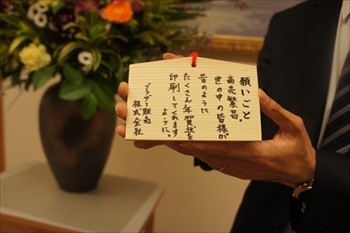 願いごと。
商売繁昌
世の中の皆様が
昔のように
たくさん年賀状を
印刷してくれます
ように。
ブラザー販売
株式会社